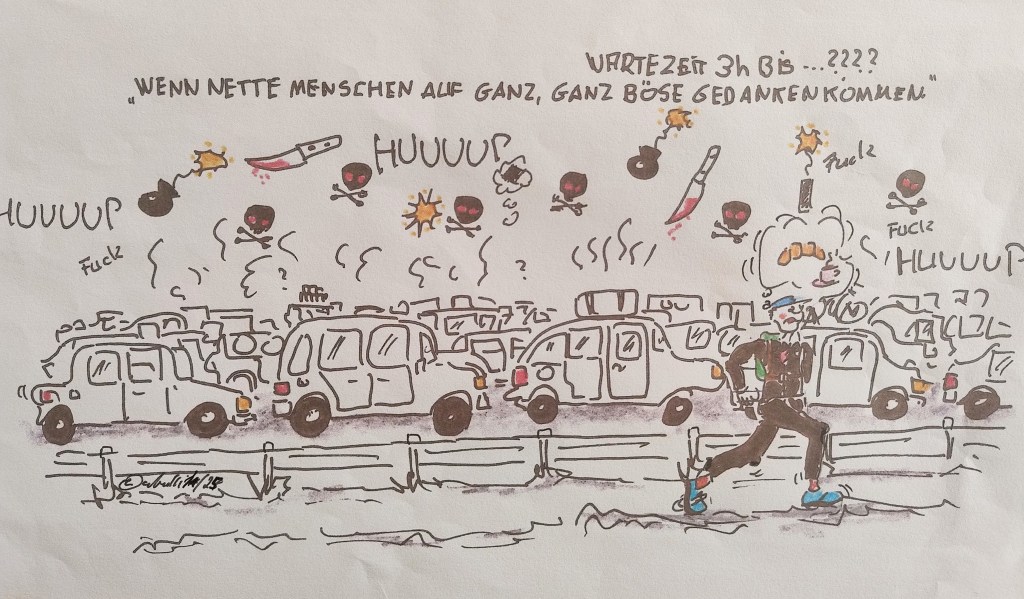 WARTEZEIT 3h Bis ...????
„WENN NETTE MENSCHEN AUF GANZ, GANZ BÖSE GEDANKEN KOMMEN"
HUUUUP
Fuck
HUUUUP
Fuck
Fuck
HUUUUP
?
?